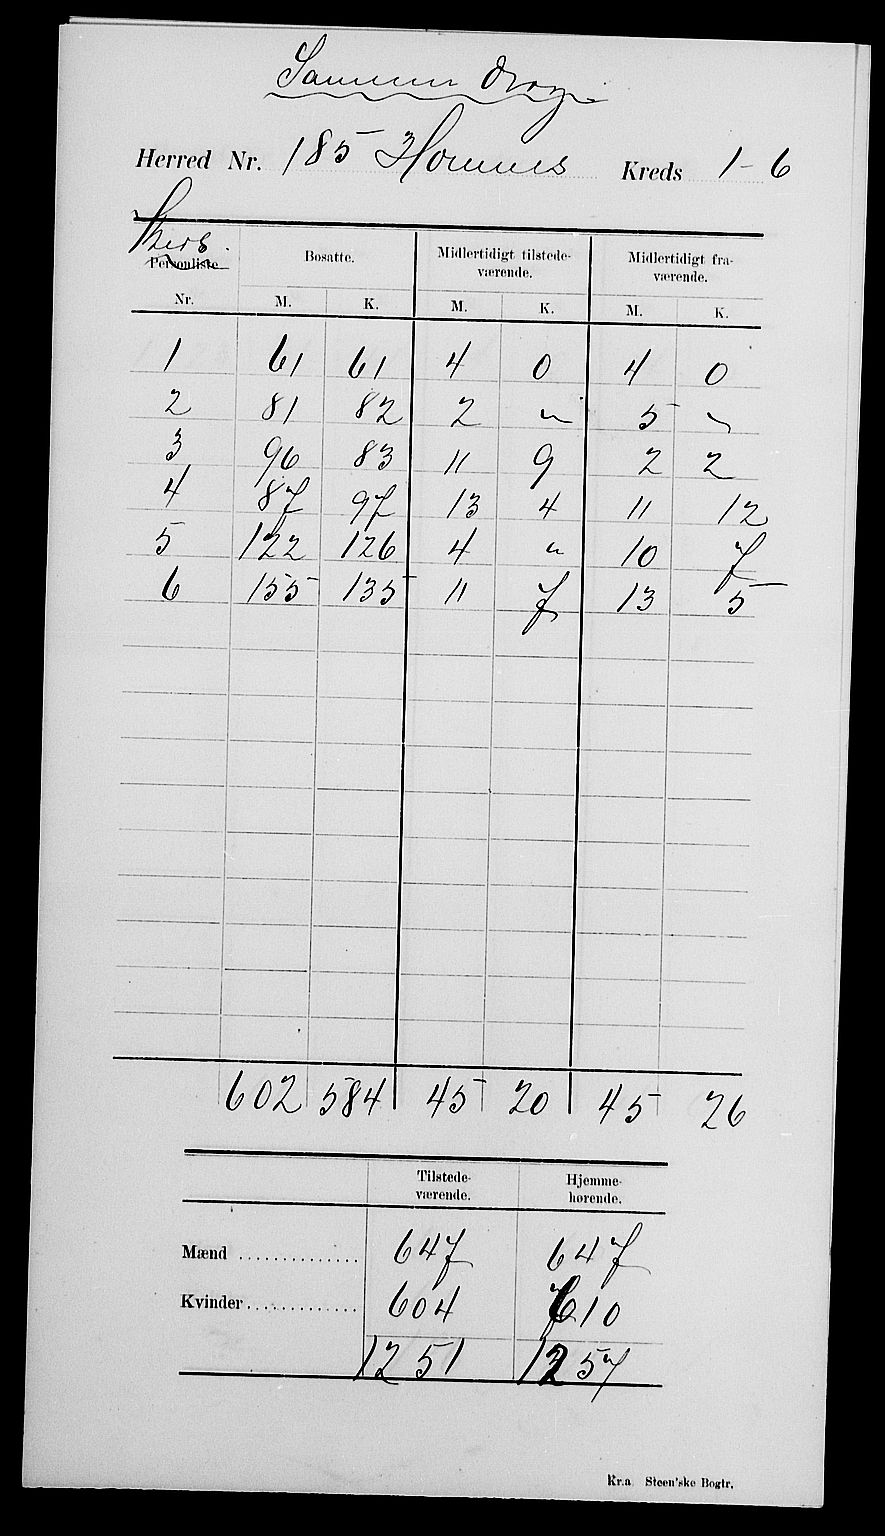 Sammendrag
Herred Nr. 185 Hommes Kreds 1-6
Kreds.
Personliste Nr. | Bosatte. M. | K. | Midlertidigt tilstede-værende. M. | K. | Midlertidigt fra-værende. M. | K.
1 61 61 4 0 4 0
2 81 82 2 " 5 "
3 96 83 11 9 2 2
4 87 97 13 4 11 12
5 122 126 4 " 10 7
6 155 135 11 7 13 5
602 584 45 20 45 26
Tilstede-værende. | Hjemme-hørende.
Mænd .............. 647 647
Kvinder ............. 604 610
1251 1257
Kr.a Steen'ske Bogtr.